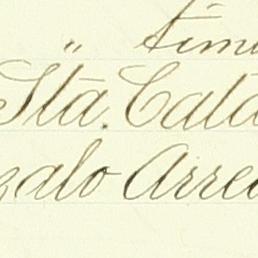 tim
„ Sta. Cata
zalo Arre